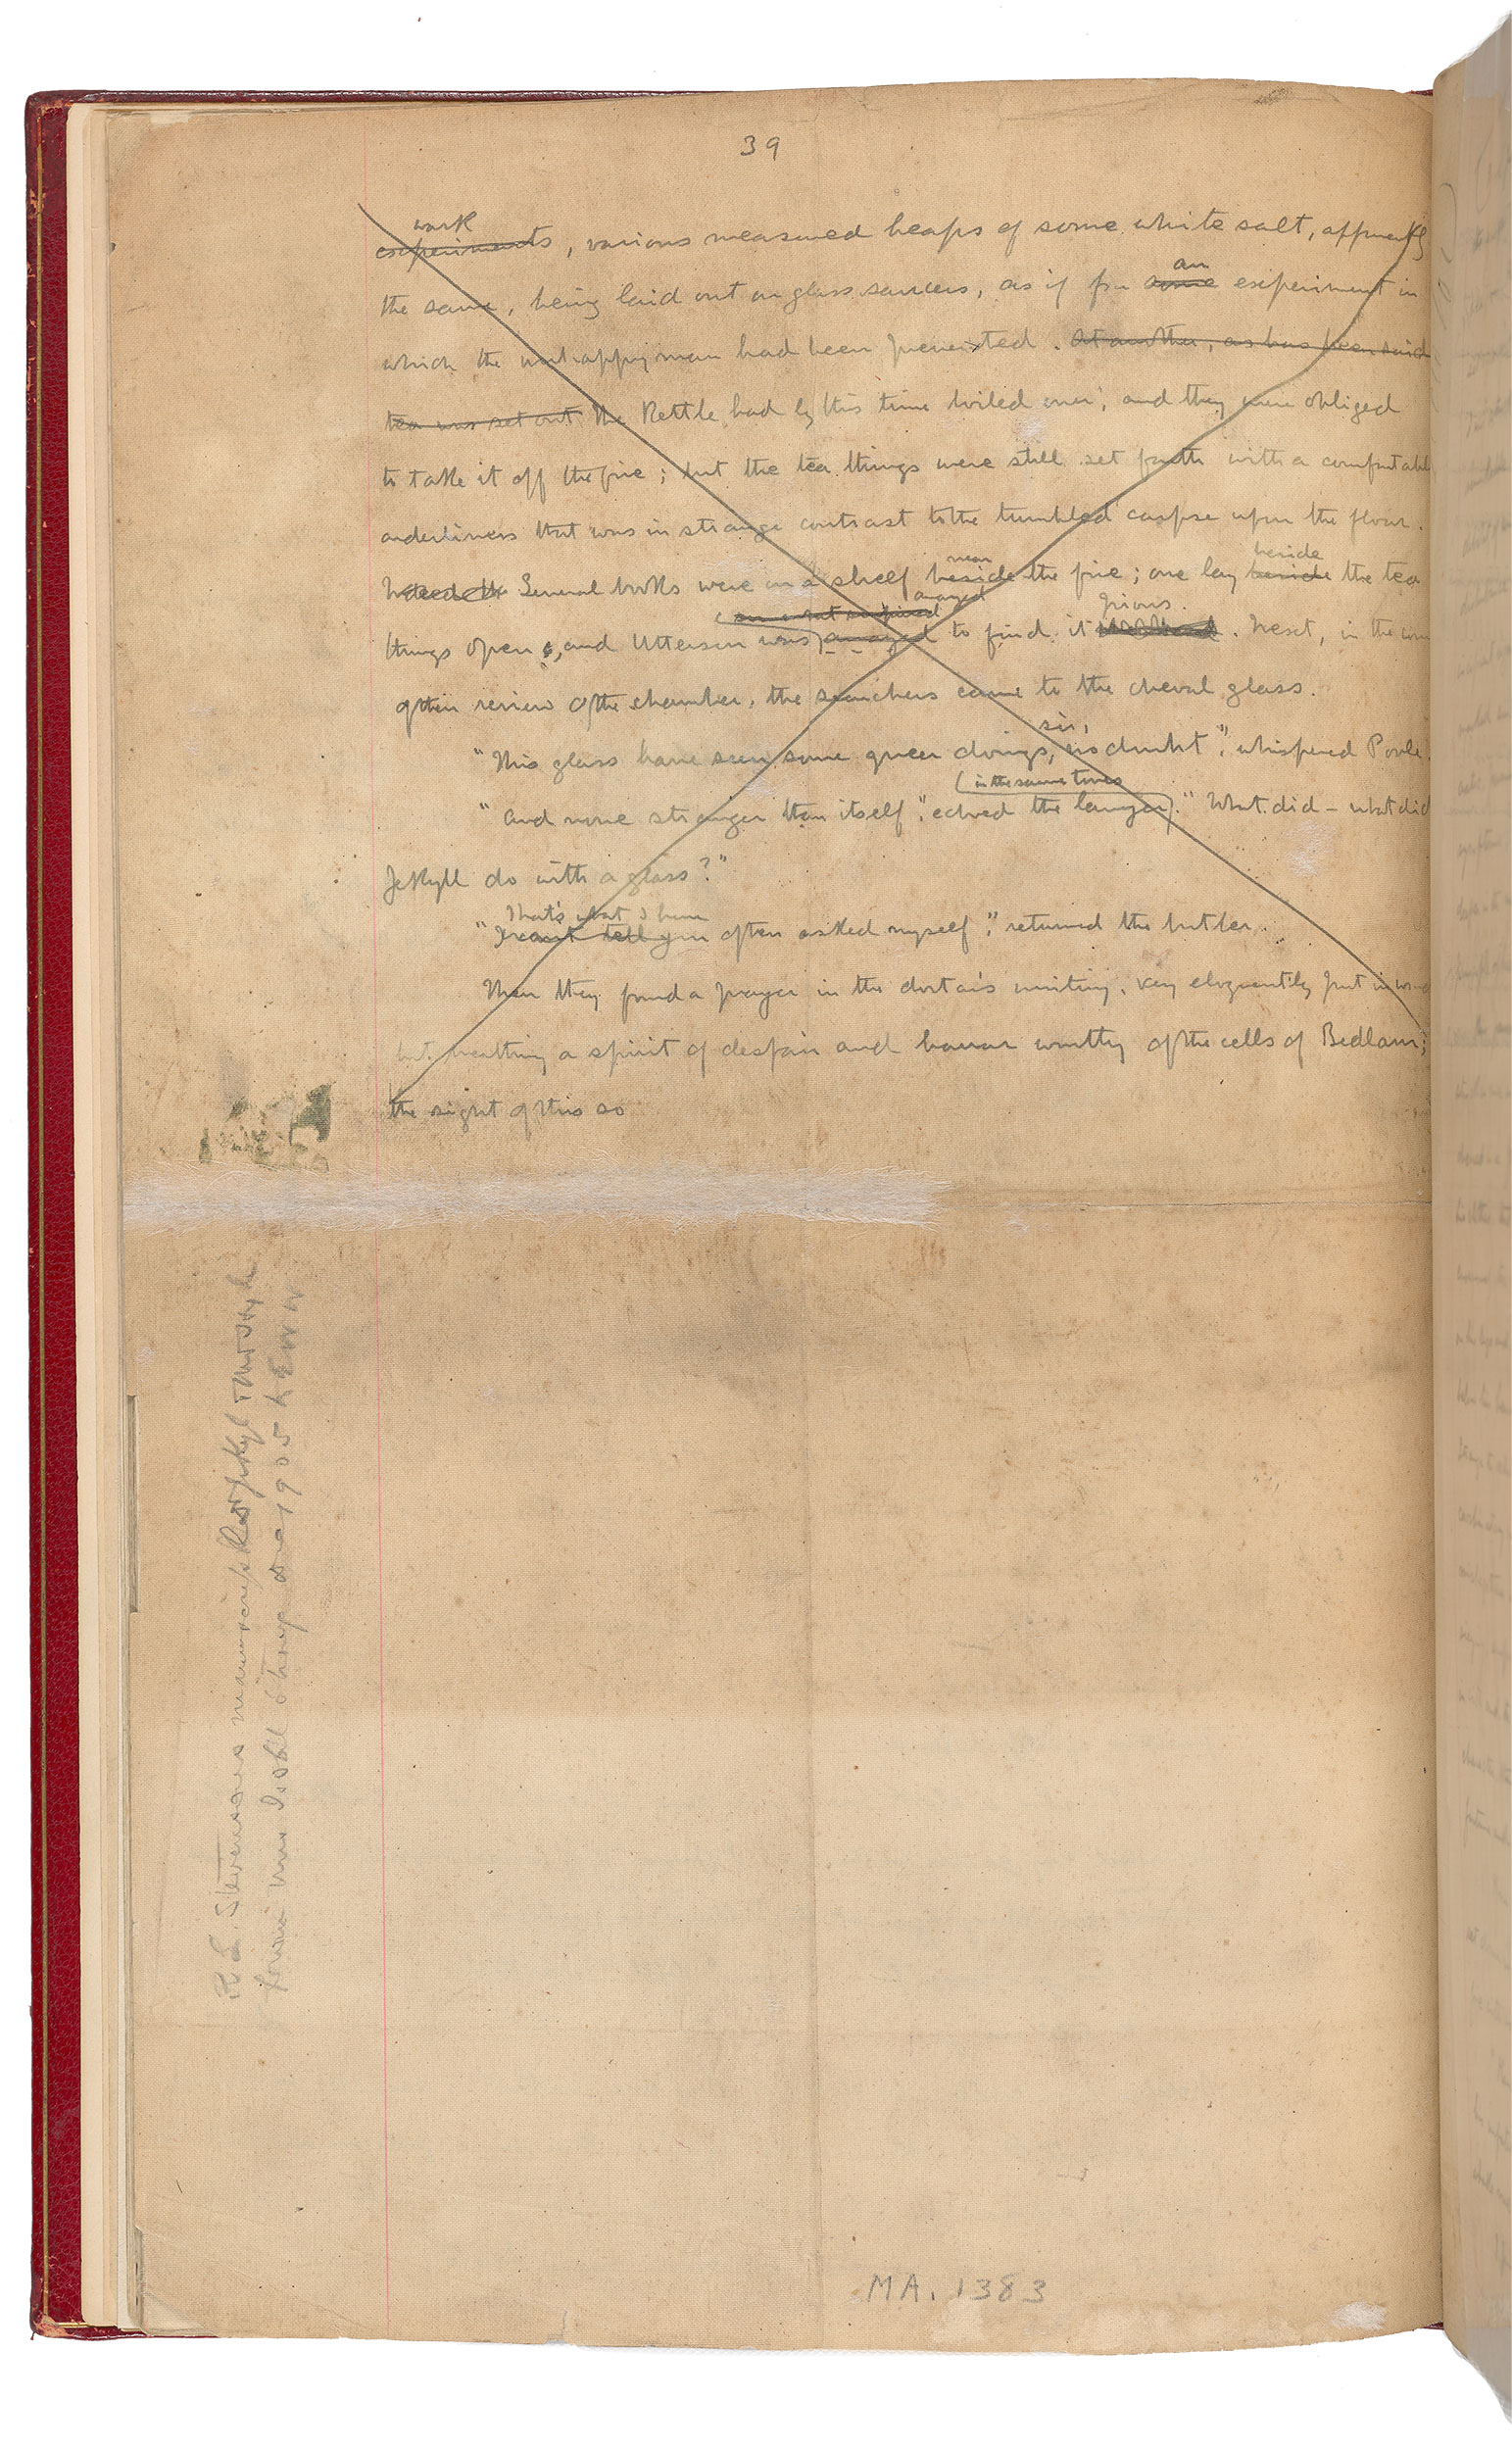 39
work
experiments, various measured heaps of some white salt, apparently
an
the same, being laid out on glass saucers, as if for some experiment in
which the unhappy man had been prevented. At another, as has been said
tea was set out The Kettle had by this time boiled over; and they were obliged
to take it off the fire; but the tea things were still set forth with a comfortable
orderliness that was in strange contrast to the tumbled corpse upon the floor.
near beside
Several books were on a shelf beside the fire; one lay beside the tea
amazed pious.
things open, and Utterson was amazed to find it. Next, in the
of their review of the chamber, the searchers came to the cheval glass.
sir,
"This glass have seen some queer doings, no doubt," whispered Poole.
(in the same tones
"And none stranger than itself," echoed the lawyer). "What did - what did
Jekyll do with a glass?"
That's what I have
"I can't tell you often asked myself," returned the butler.
Then they found a prayer in the doctor's writing, very eloquently put in
but breathing a spirit of despair and horror worthy of the cells of Bedlam;
the sight of this so
R L. Stevensons manuscript
1905
MA. 1383